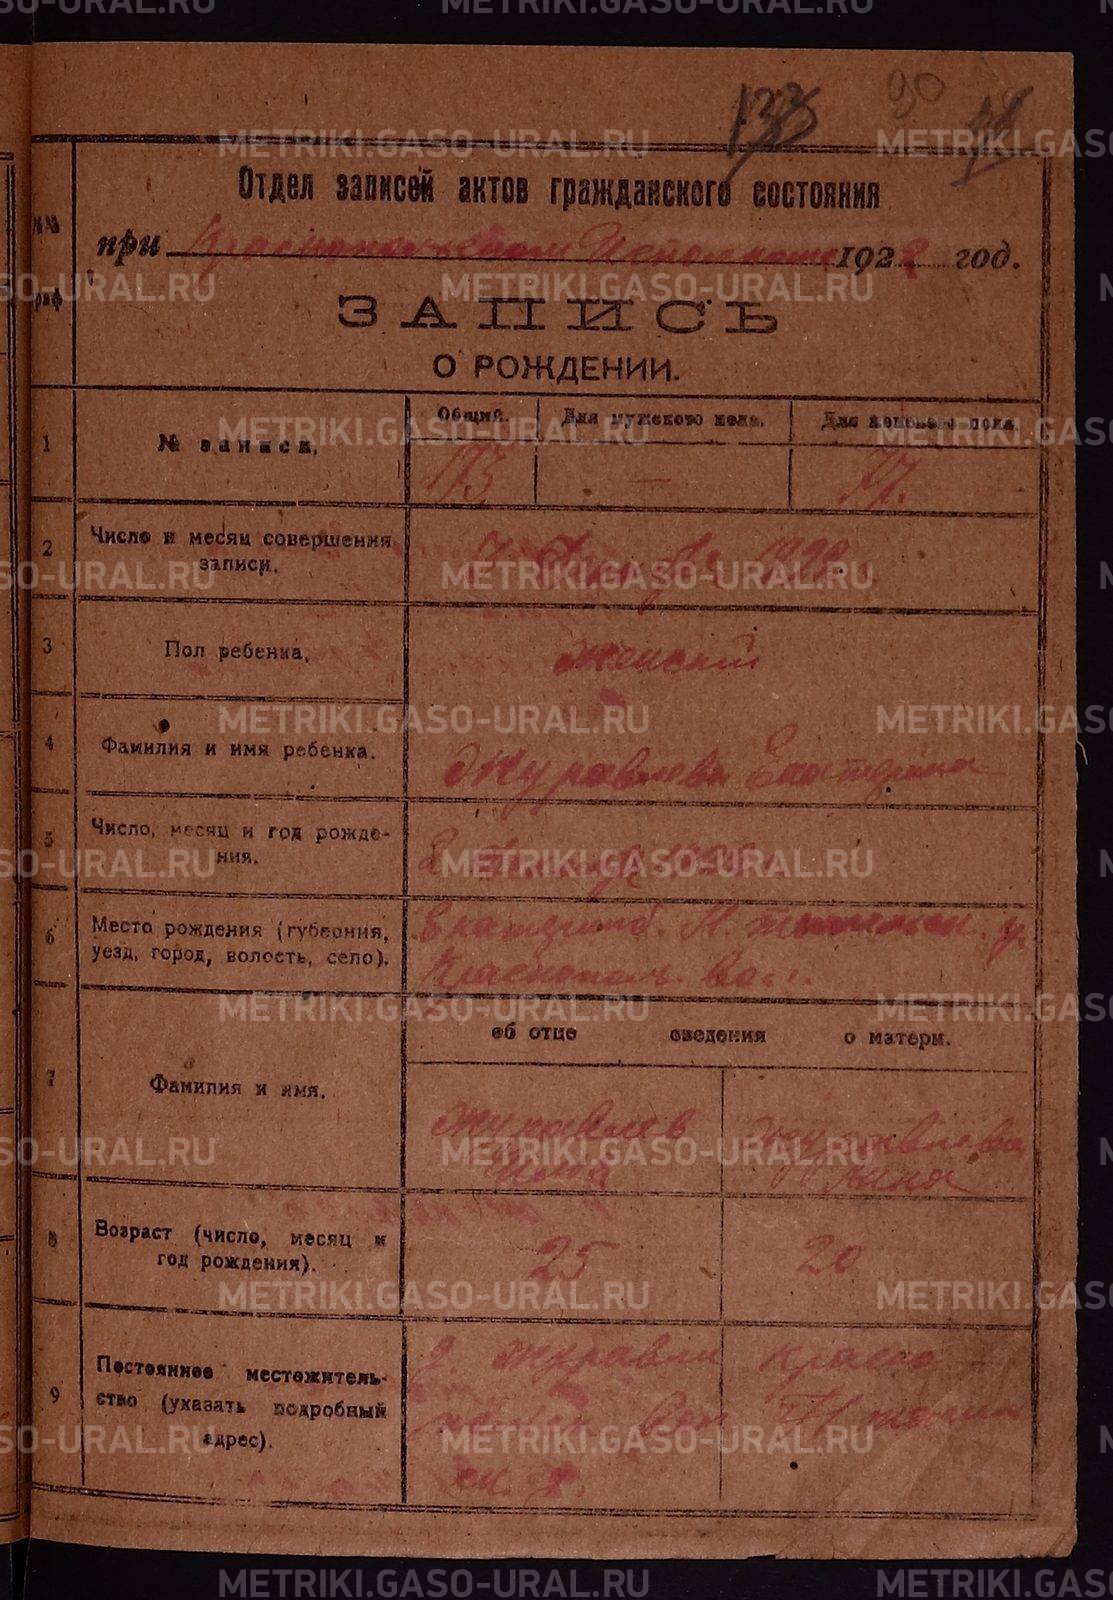 METRIKI.GASO-URAL.RU
90
133
Отдел записей актов гражданского состояния
при Краснопольском Исполкоме 1922 год.
№№
граф
ЗАПИСЬ
О РОЖДЕНИИ.
1
№ записи.
Общий.
Для мужского пола.
Для женского пола.
173
—
77.
2
Число и месяц совершения
записи.
7 Декабря 1922 г.
3
Пол ребенка.
женский
4
Фамилия и имя ребенка.
Журавлева Екатерина
5
Число, месяц и год рожде-
ния.
2 1922
6
Место рождения (губерния,
уезд, город, волость, село).
Екатеринб. Н. у.
Краснополь. вол.
об отце сведения о матери.
7
Фамилия и имя.
Журавлев
Журавлева
Анна
8
Возраст (число, месяц и
год рождения).
25
20
9
Постоянное местожитель-
ство (указать подробный
адрес).
д Журавли Красно-
польск вол Н тагил
ск. у.
METRIKI.GASO-URAL.RU